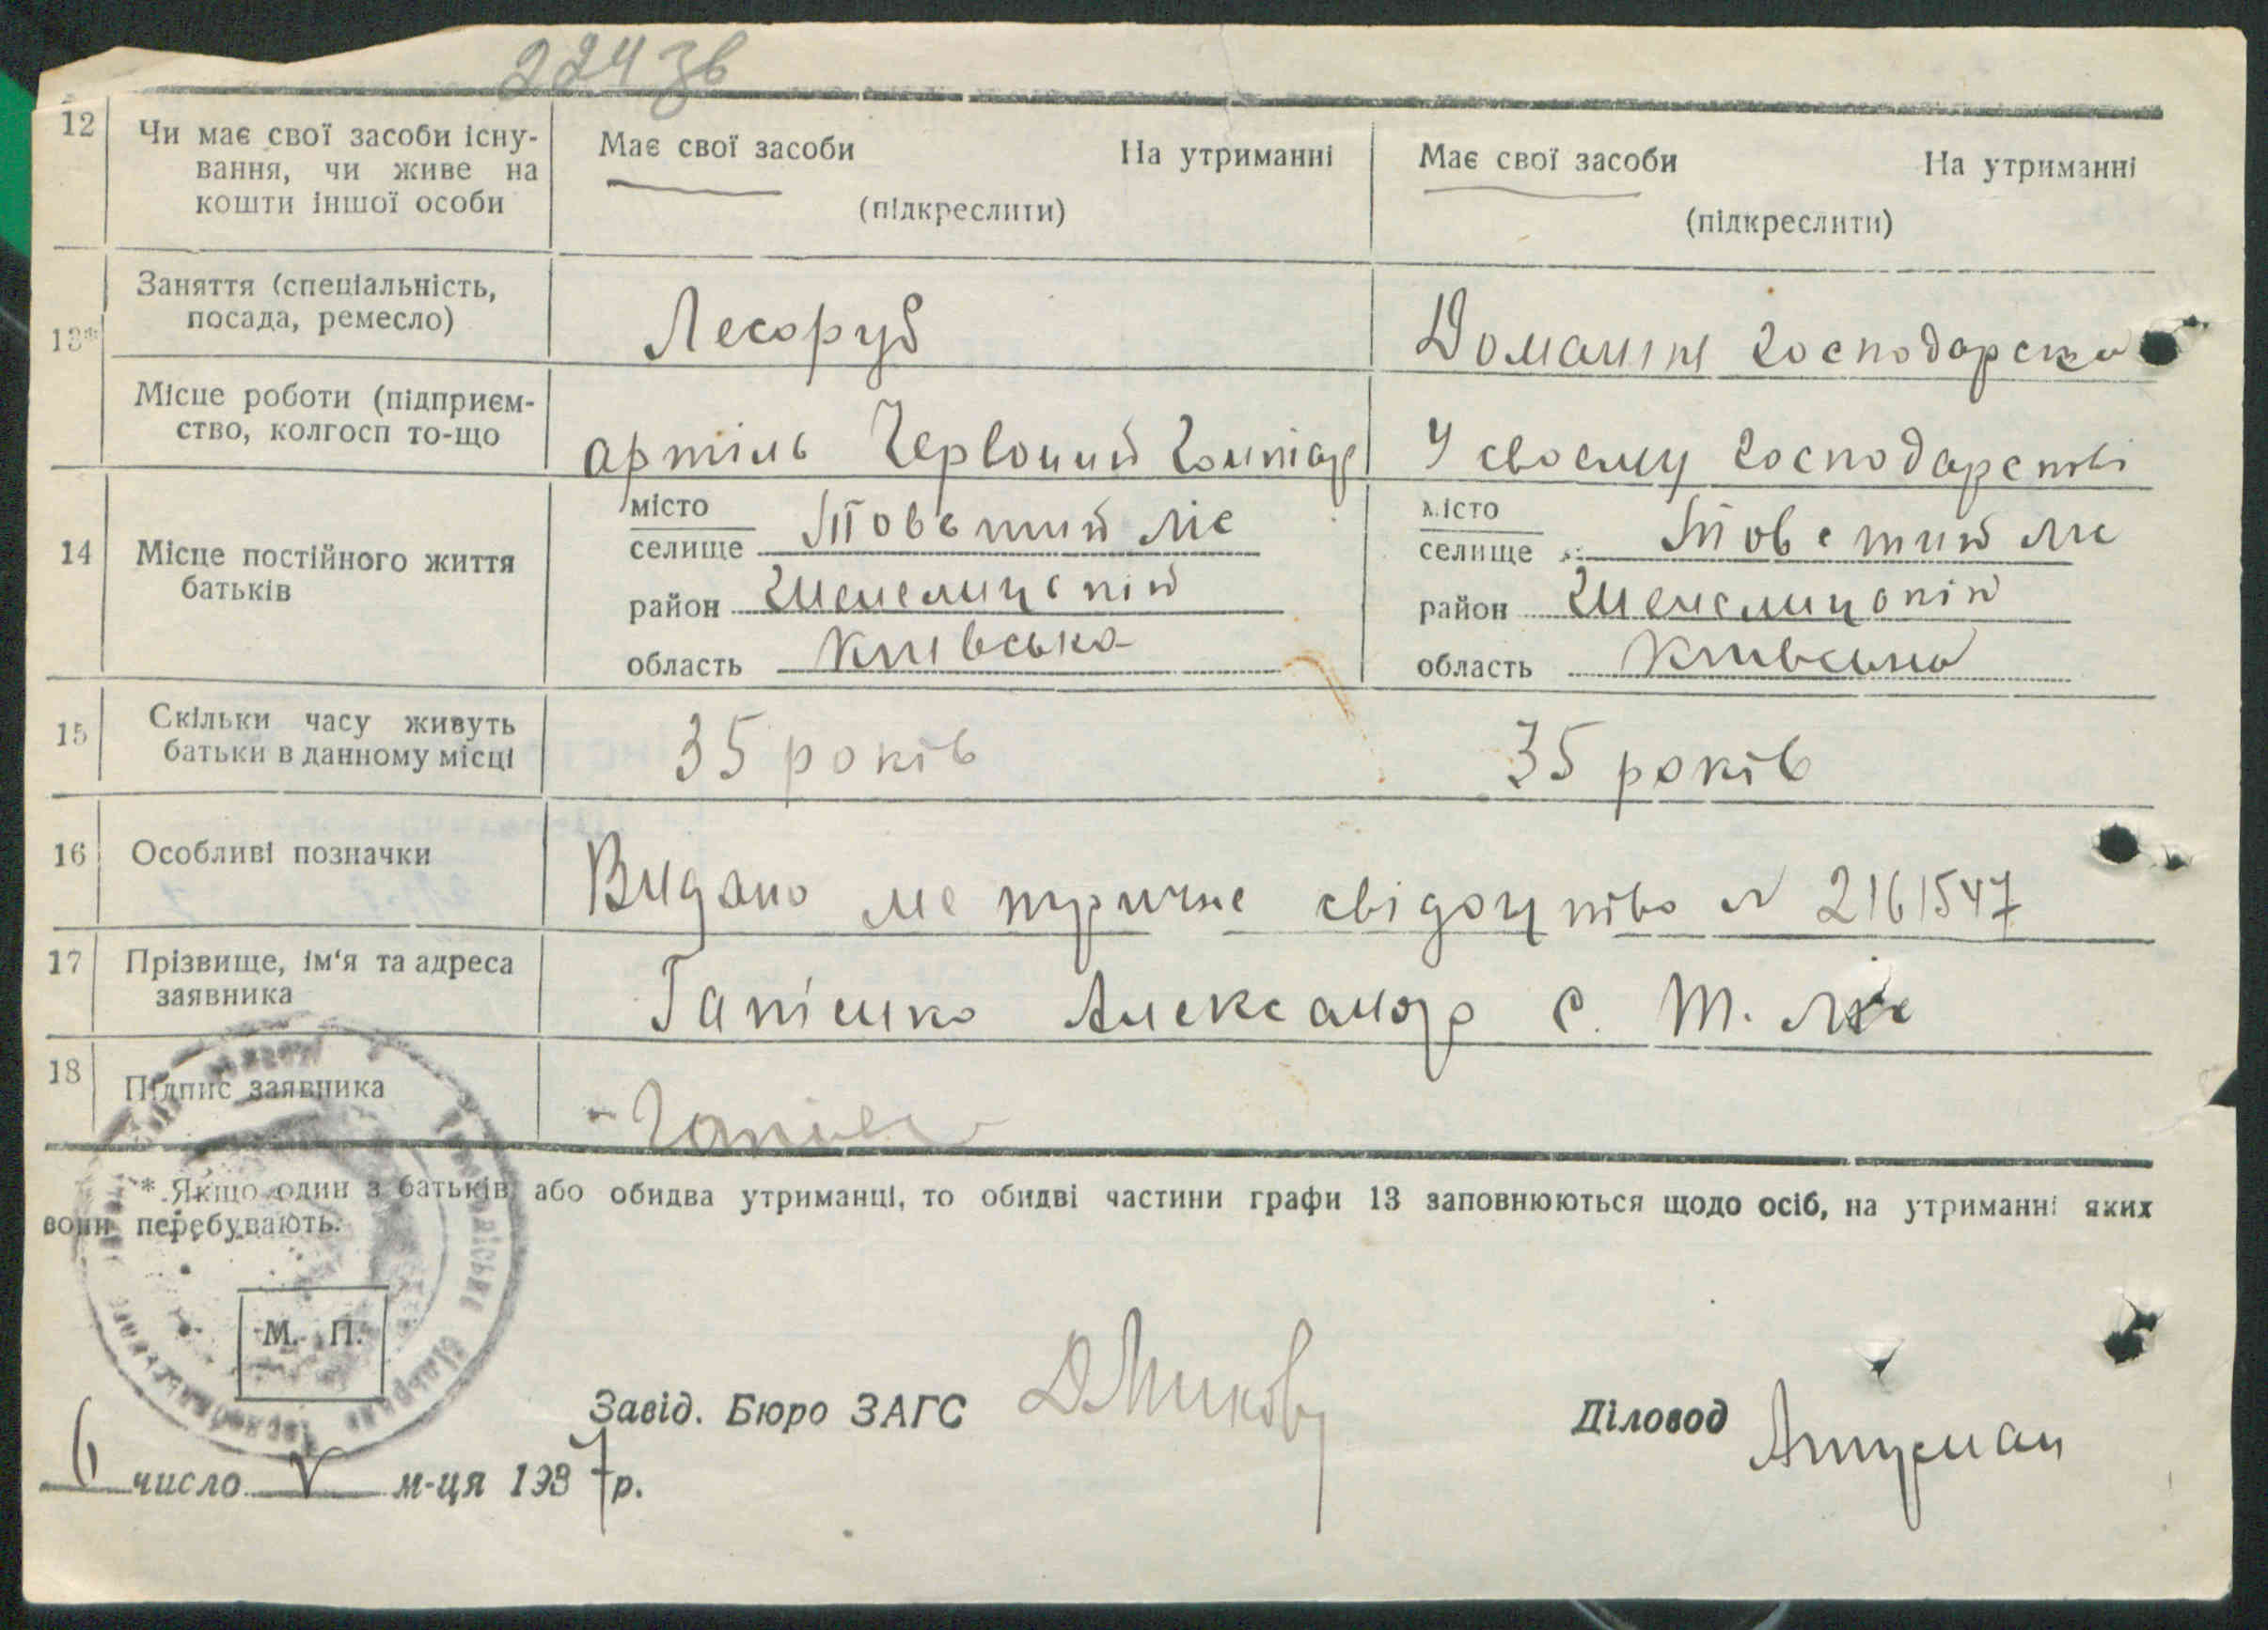 224 зв
12
Чи має свої засоби існу-
вання, чи живе на
кошти іншої особи
Має свої засоби На утриманні
(підкреслити)
Має свої засоби На утриманні
(підкреслити)
13*
Заняття (спеціальність,
посада, ремесло)
Лесоруб
Домашнє господарство
Місце роботи (підприєм-
ство, колгосп то-що
артіль Червоний
У своєму господарстві
14
Місце постійного життя
батьків
місто
селище Товстий Ліс
район
область Київська
місто
селище Товстий Ліс
район
область Київська
15
Скільки часу живуть
батьки в данному місці
35 років
35 років
16
Особливі позначки
Видано метричне свідоцтво N 2161547
17
Прізвище, ім'я та адреса
заявника
Гапієнко Александр с. Т. Ліс
18
Підпис заявника
* Якщо один з батьків або обидва утриманці, то обидві частини графи 13 заповнюються щодо осіб, на утриманні яких
вони перебувають.
М. П.
Завід. Бюро ЗАГС
Діловод
6 число V м-ця 1937 р.